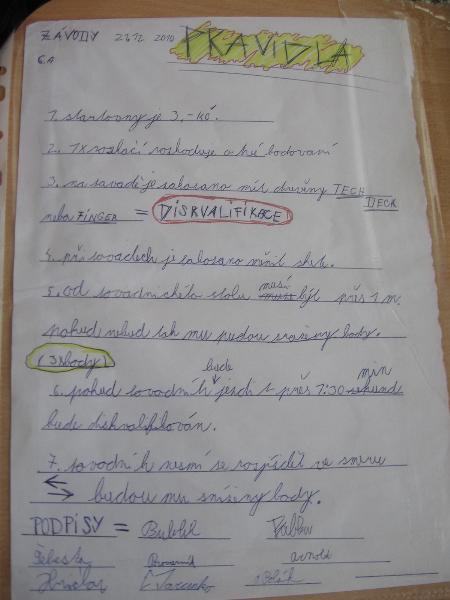 ZÁVODY 23.12. 2010 PRAVIDLA
6.A
1. startovny je 3,-kč.
2. 1x rozhodčí rozhoduje a hé bodovaní
3. na zavadě je zakazano mít dřevěny TECH DECK
nebo FINGER = DISKVALIFIKACE
4. při zavadech je zakazano měnit skate.
5. od zavadnickeho stolu musí být přes 1 m.
pokud nebude tak mu budou sraženy body.
(3x body)
6. pokud zavodník bude jezdit přes 1:30 min
bude diskvalifikován.
7. zavodník nesmí se rozjíždět ve smeru
← → budou mu sníženy body.
PODPISY =
Šebesta Arnold